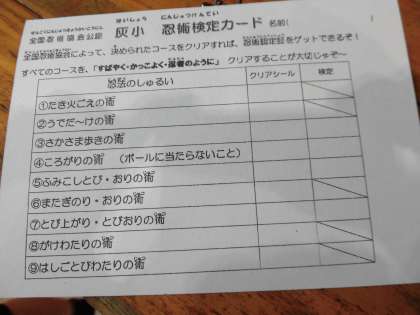 全国忍術協会公認 灰小 忍術検定カード 名前(
全国忍術協会によって、決められたコースをクリアすれば、忍術認定証をゲットできるぞ!
すべてのコースを、「すばやく・かっこよく・忍者のように」 クリアすることが大切じゃぞ~
忍法のしゅるい クリアシール 検定
①たき火ごえの術
②うでだ~けの術
③さかさま歩きの術
④ころがりの術 (ボールに当たらないこと)
⑤ふみこしとび・おりの術
⑥またぎのり・おりの術
⑦とび上がり・とびおりの術
⑧がけわたりの術
⑨はしごとびわたりの術